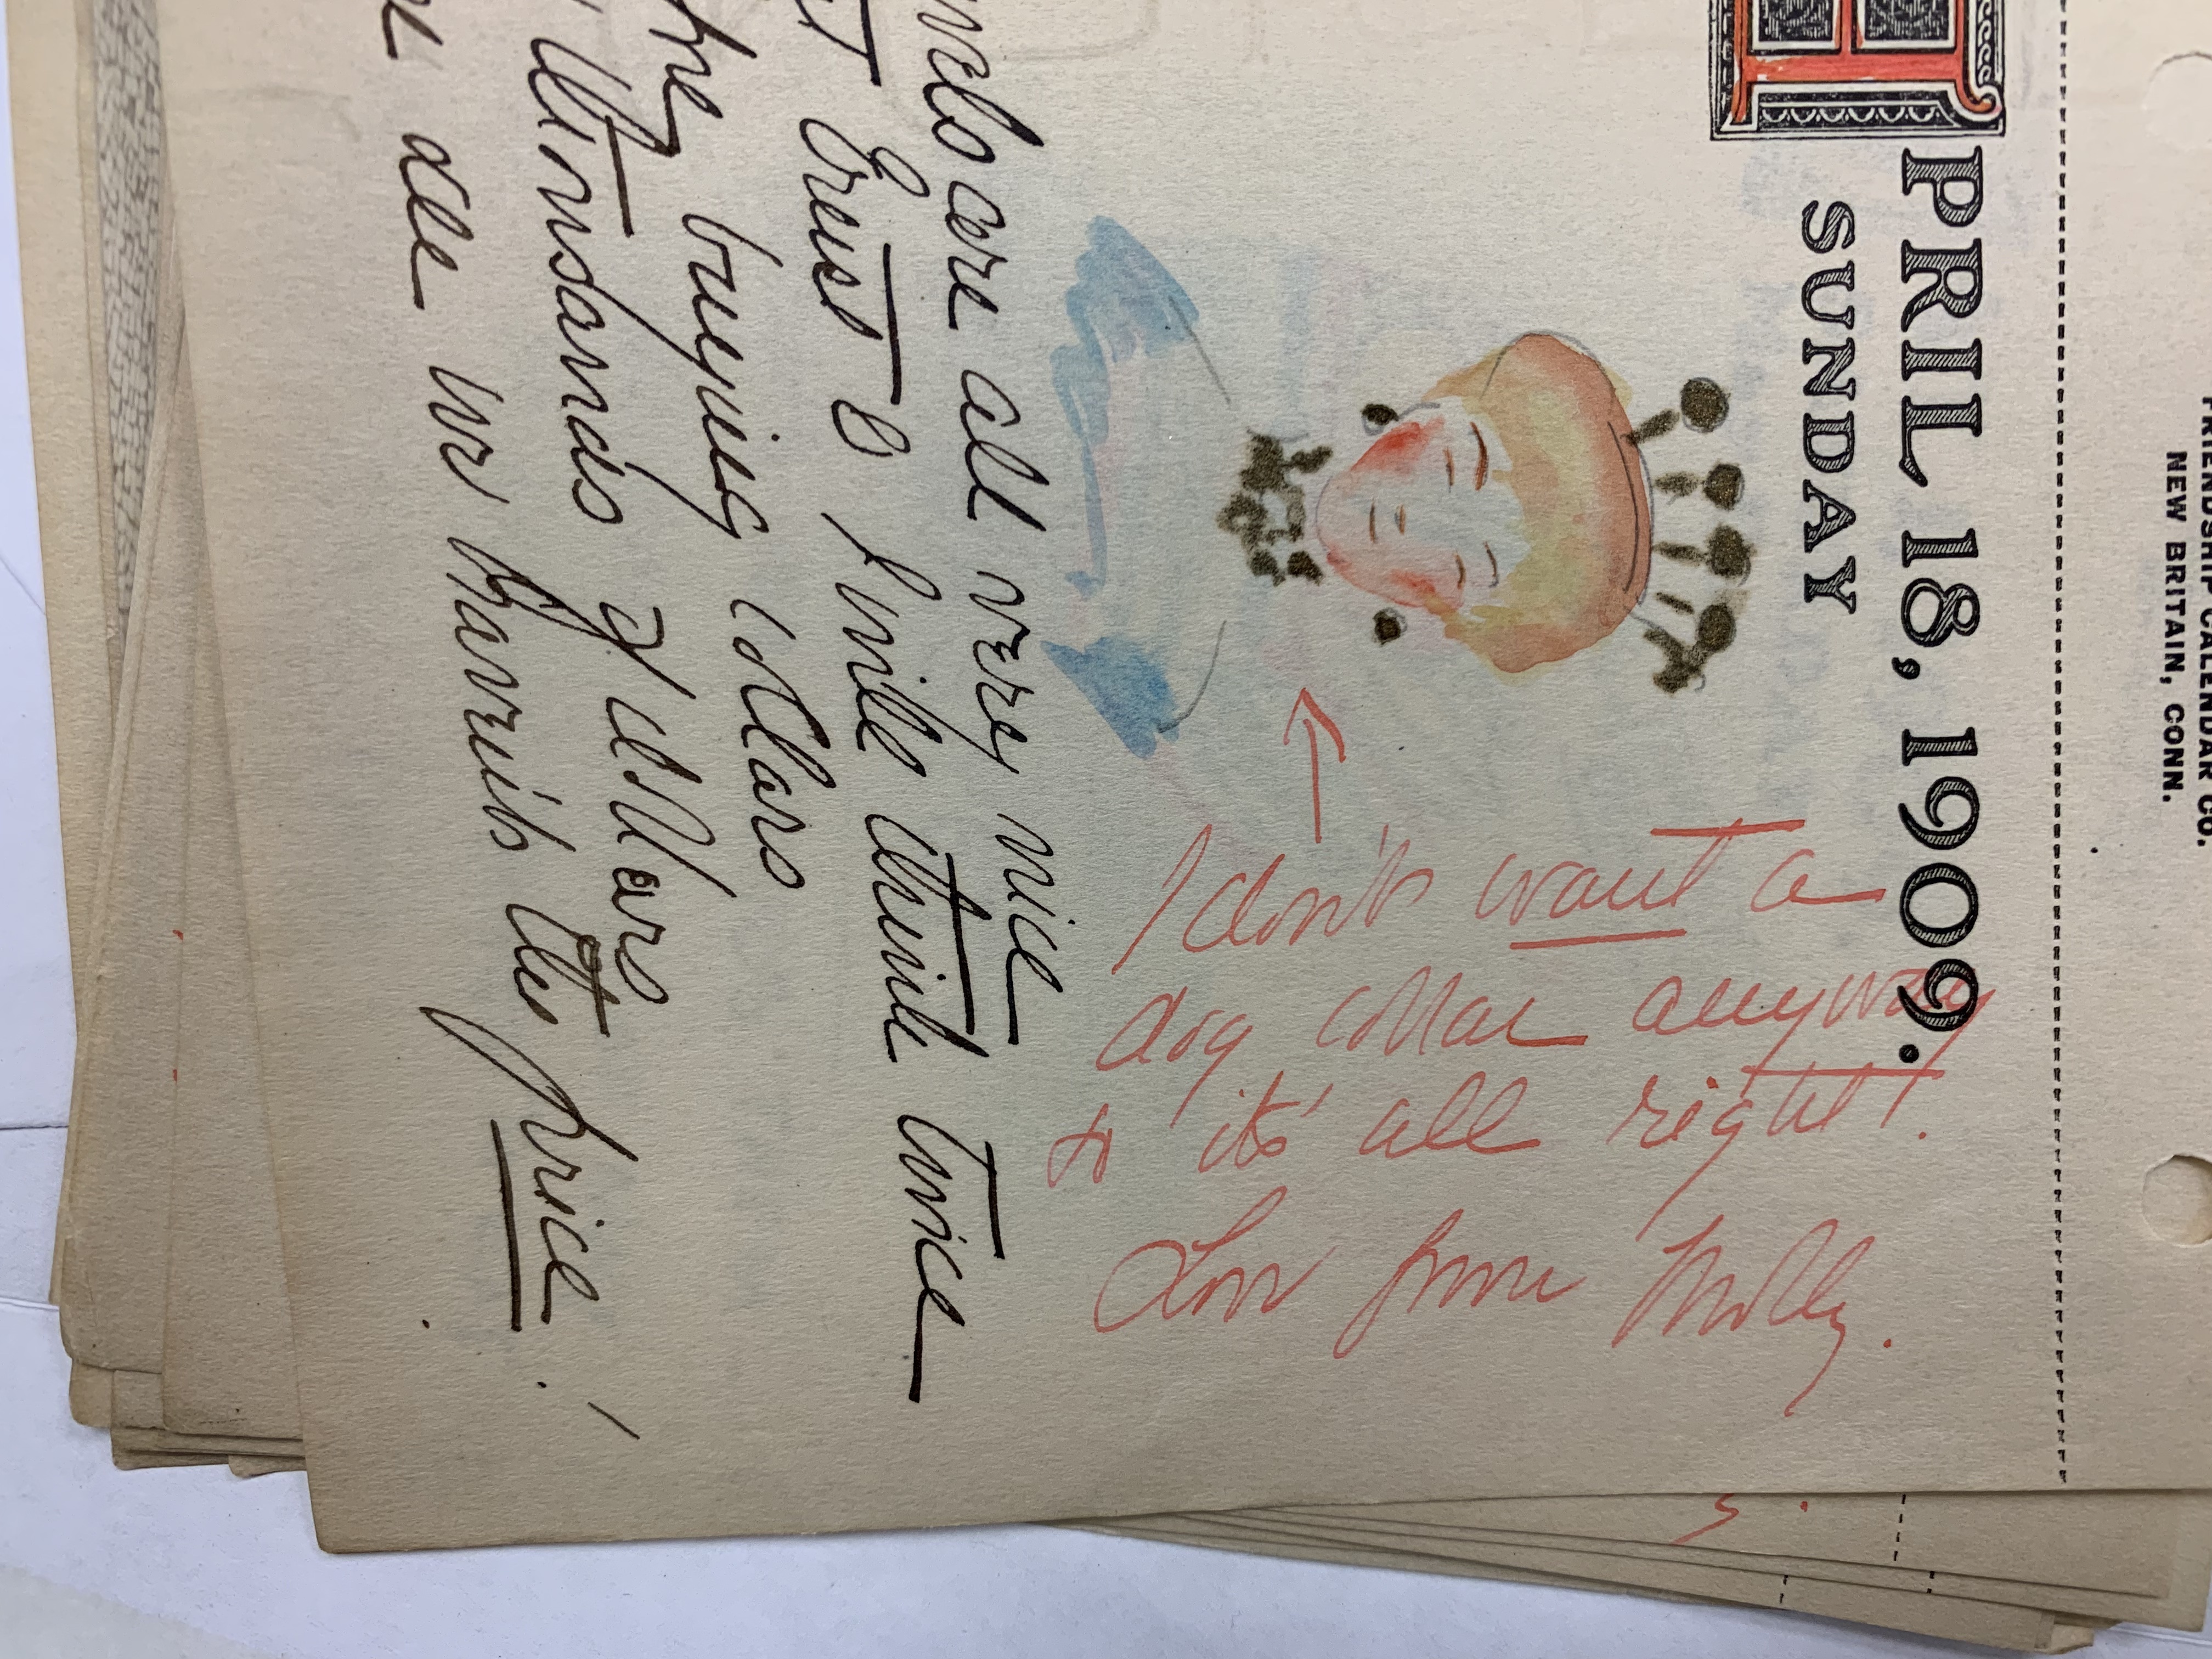 FRIENDSHIP CALENDAR CO.
NEW BRITAIN, CONN.
PRIL 18, 1909.
SUNDAY
I don't want a
dog collar anyway
so it's all right!
Love from Molly.
wels are all very nice
I will think twice
re buying collars
thousands of dollars
all haven't the price!